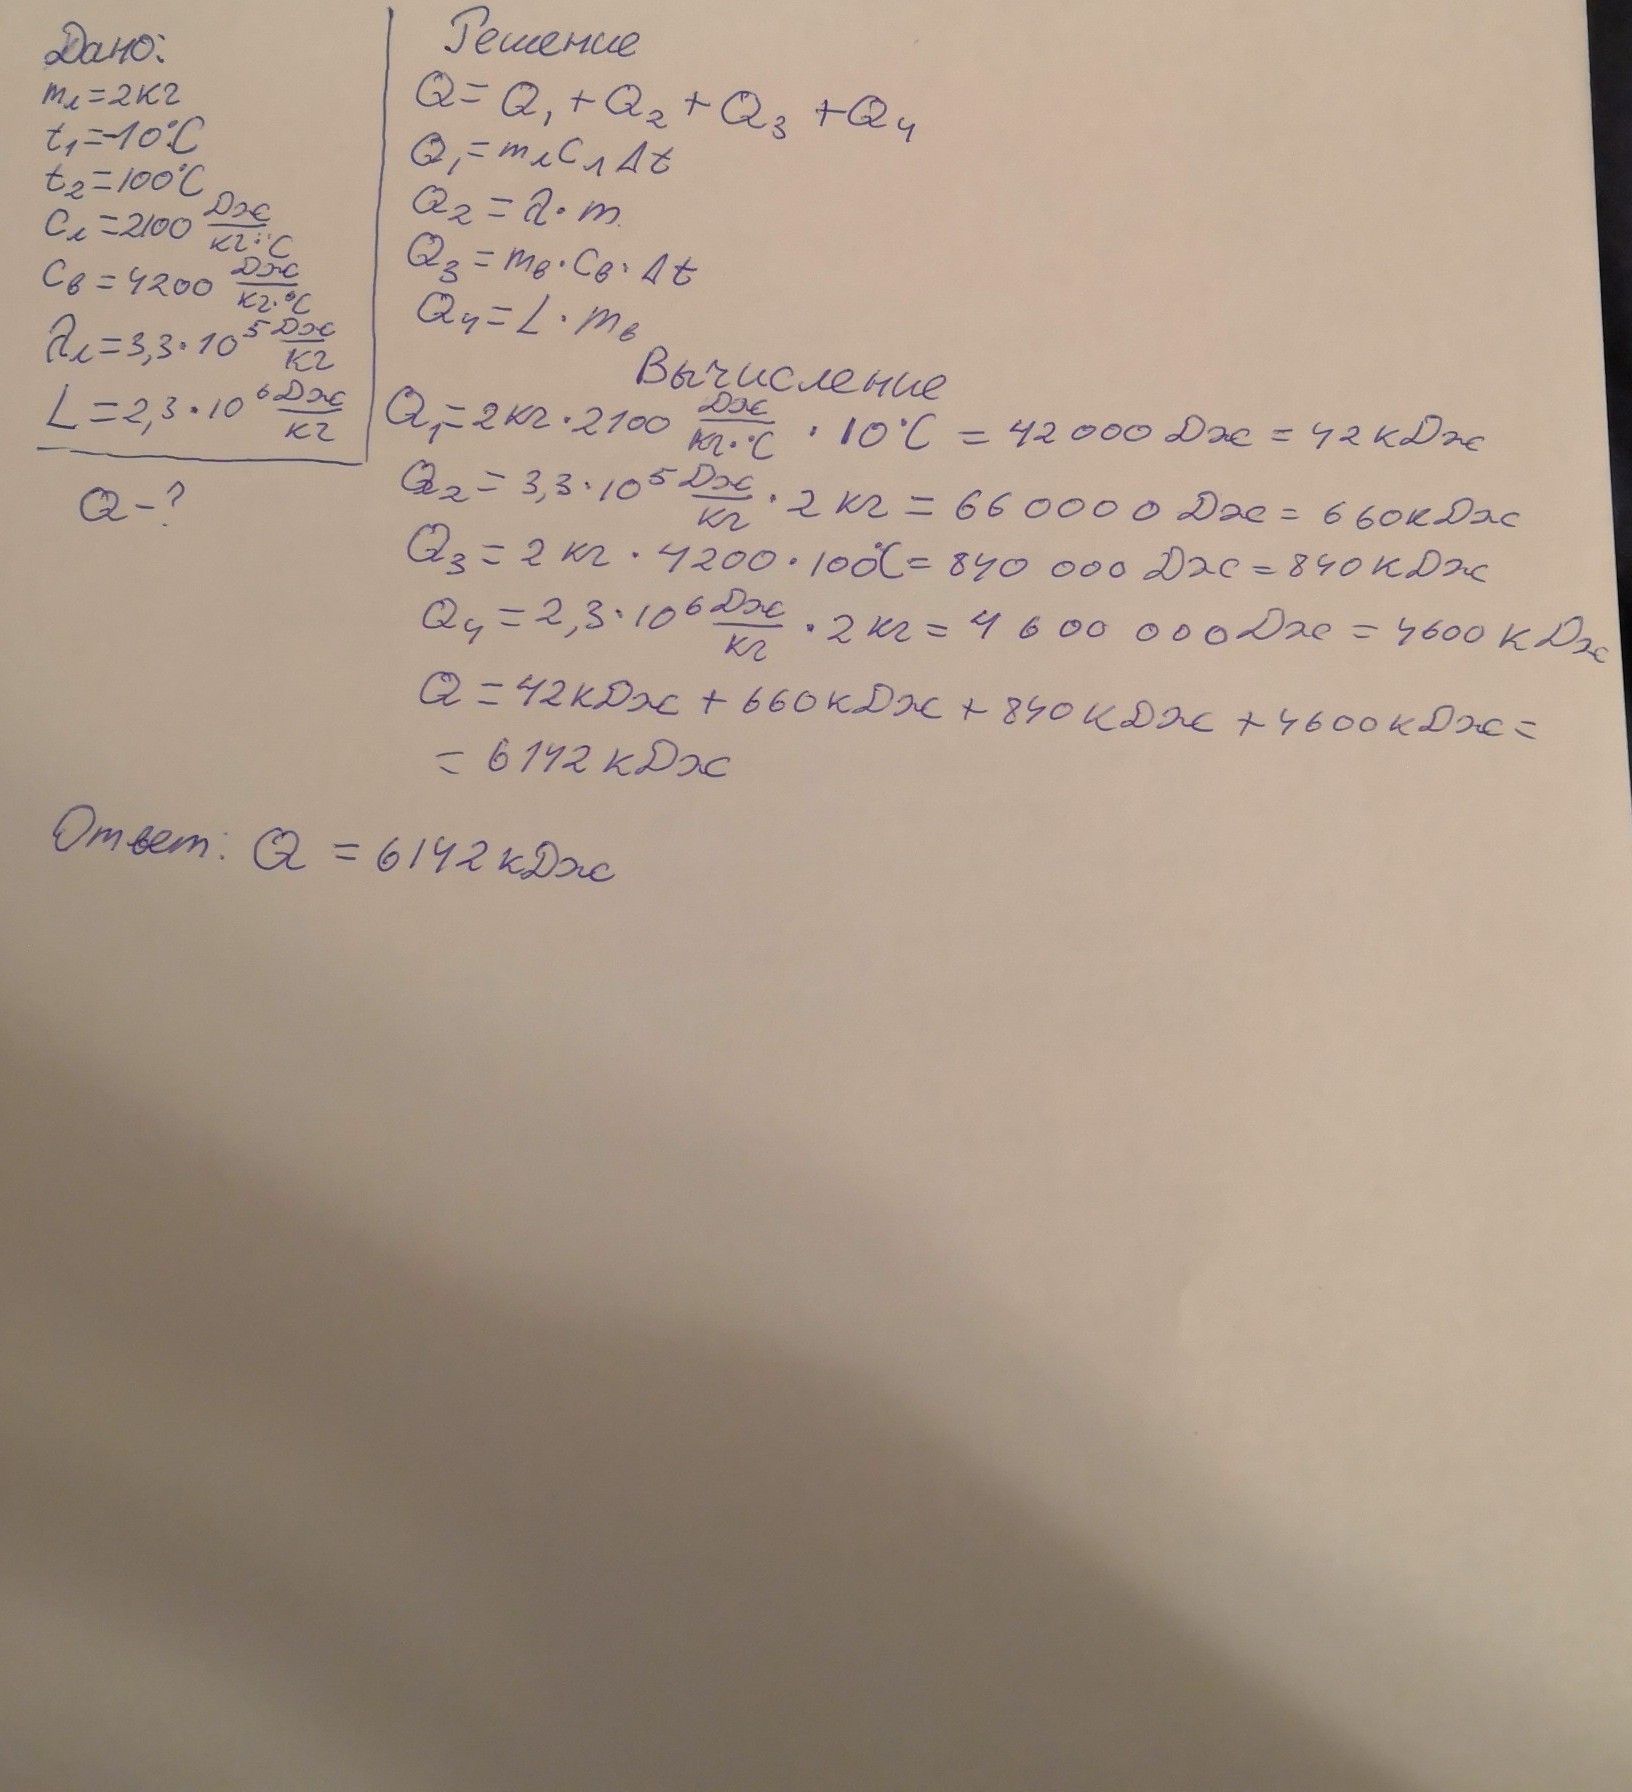 Дано:
mл=2кг
t₁=-10°C
t₂=100°C
Cл=2100 Дж/кг·°C
Cв=4200 Дж/кг·°C
λл=3,3·10⁵ Дж/кг
L=2,3·10⁶ Дж/кг
Q-?
Решение
Q=Q₁+Q₂+Q₃+Q₄
Q₁=mлCлΔt
Q₂=λ·m
Q₃=mв·Cв·Δt
Q₄=L·mв
Вычисление
Q₁=2кг·2100 Дж/кг·°C ·10°C=42000Дж=42кДж
Q₂=3,3·10⁵ Дж/кг ·2кг=660000Дж=660кДж
Q₃=2кг·4200·100°C=840 000Дж=840кДж
Q₄=2,3·10⁶ Дж/кг ·2кг=4 600 000Дж=4600кДж
Q=42кДж+660кДж+840кДж+4600кДж=
=6142кДж
Ответ: Q=6142кДж